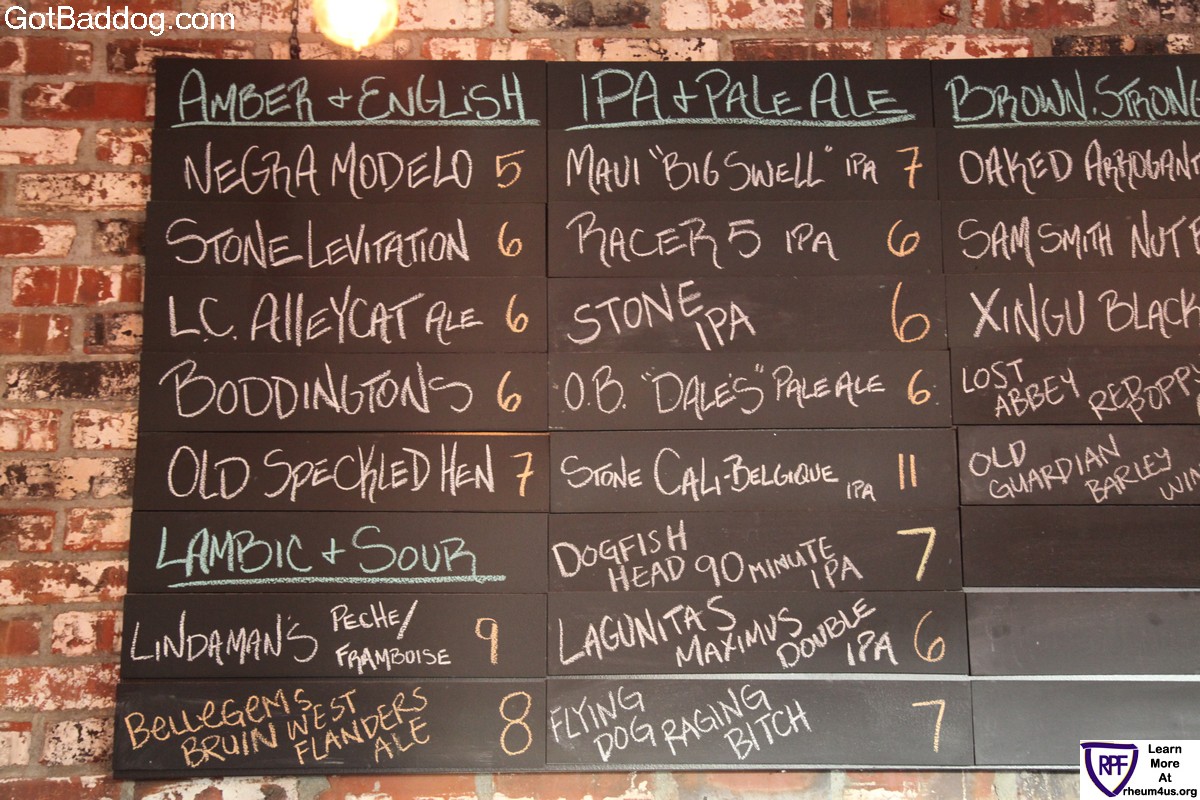 GotBaddog.com
AMBER + ENGLISH
NEGRA MODELO 5
STONE LEVITATION 6
L.C. ALLEYCAT ALE 6
BODDINGTONS 6
OLD SPECKLED HEN 7
LAMBIC + SOUR
LINDAMAN'S PECHE/
FRAMBOISE 9
BELLEGEMS
BRUIN WEST
FLANDERS
ALE 8
IPA + PALE ALE
MAUI "BIG SWELL" IPA 7
RACER 5 IPA 6
STONE
IPA 6
O.B. "DALE'S" PALE ALE 6
STONE CALI-BELGIQUE IPA 11
DOGFISH
HEAD 90 MINUTE
IPA 7
LAGUNITAS
MAXIMUS
DOUBLE
IPA 6
FLYING
DOG RAGING
BITCH 7
BROWN. STRONG
OAKED ARROGANT
SAM SMITH NUT
XINGU BLACK
LOST
ABBEY RED POPPY
OLD
GUARDIAN
BARLEY
WIN
RPF
Learn
More
At
rheum4us.org